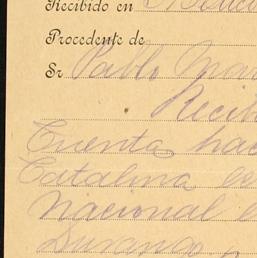 Recibido en
Procedente de
Sr Pablo Mar
Recib
Cuenta hac
Catalina de
Nacional e
Durango